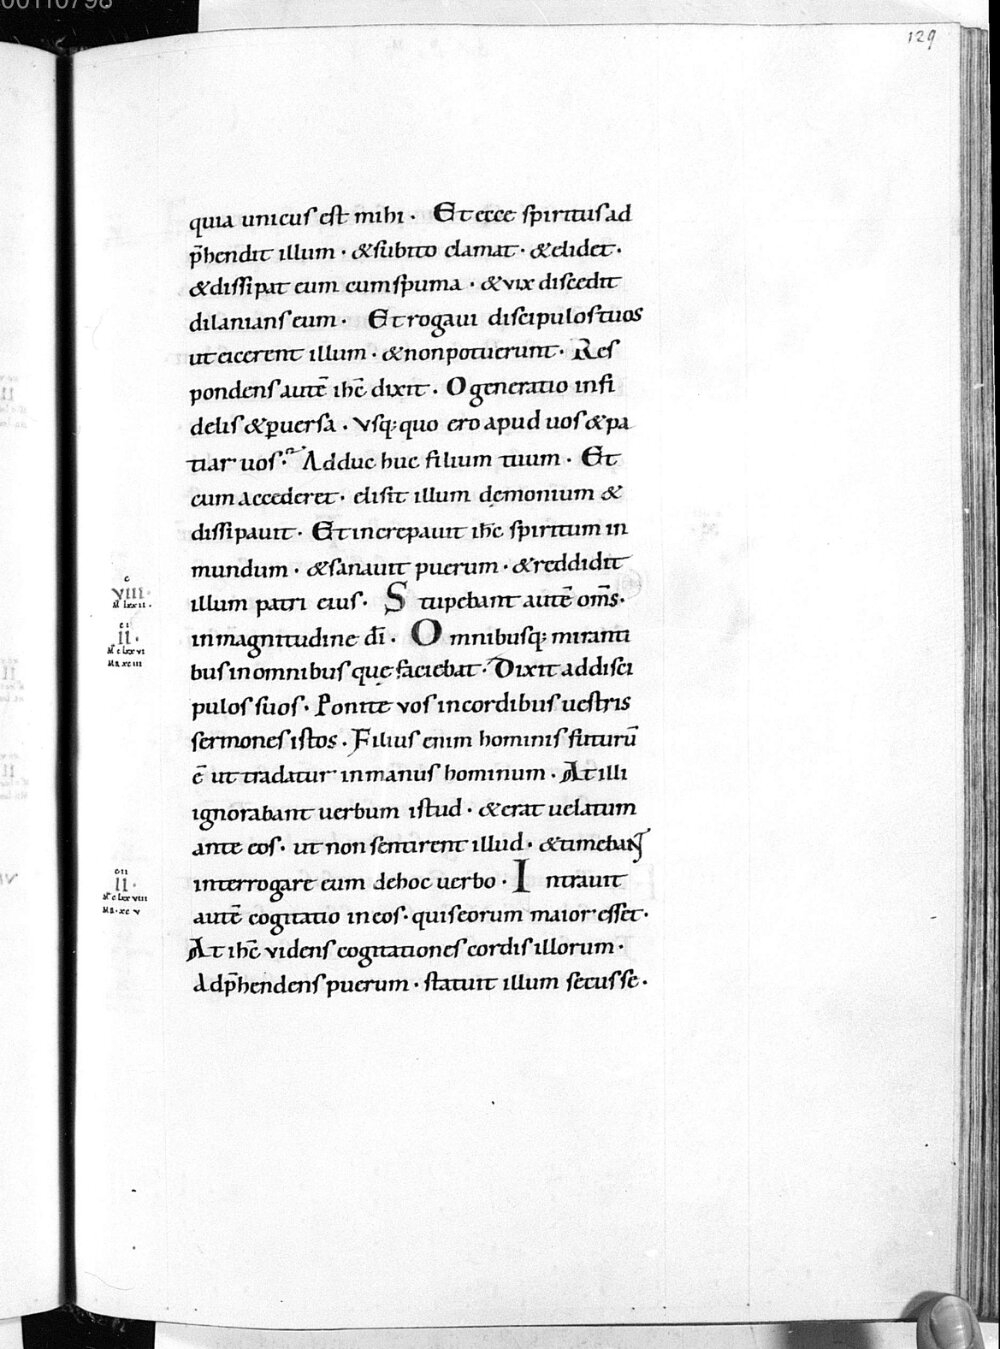 00110798
129
quia unicus est mihi · Et ecce spiritus ad
p̄hendit illum · & subito clamat · & elidet ·
& dissipat eum cum spuma · & vix discedit
dilanians eum · Et rogaui discipulos tuos
ut eicerent illum · & non potuerunt · Res
pondens autē ih̄c dixit · O generatio infi
delis & ꝑuersa · vsq; quo ero apud uos & pa
tiar uos · Adduc huc filium tuum · Et
cum accederet · elisit illum dęmonium &
dissipauit · Et increpauit ih̄c spiritum in
mundum · & sanauit puerum · & reddidit
illum patri eius · Stupebant autē om̄s ·
in magnitudine dī · Omnibusq; miranti
bus in omnibus quę faciebat · Dixit ad disci
pulos suos · Ponite vos in cordibus uestris
sermones istos · Filius enim hominis futurū
ē ut tradatur in manus hominum · At illi
ignorabant uerbum istud · & erat uelatum
ante eos · ut non sentirent illud · & timebant
interrogare eum de hoc uerbo · Intrauit
autē cogitatio in eos · quis eorum maior esset ·
At ih̄c videns cogitationes cordis illorum ·
Adp̄hendens puerum · statuit illum secus se ·
c
VIII·
M lxxii·
ci
II·
M c lxxvi
MR xciii
cii
II·
M c lxxviii
MR · xc v